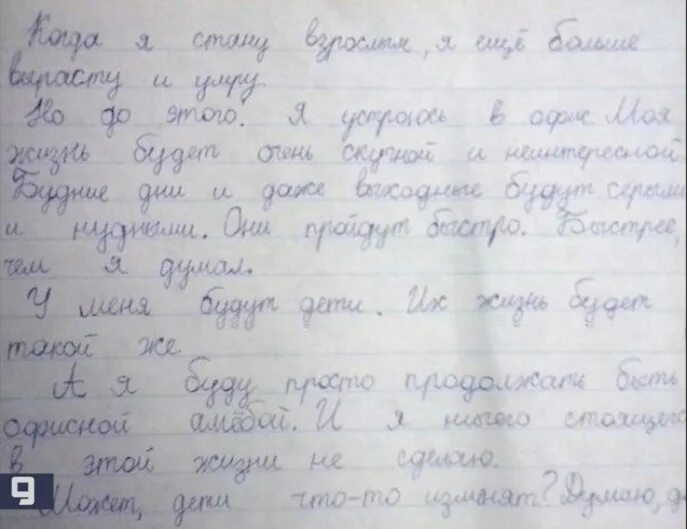 Когда я стану взрослым, я ещё больше
вырасту и умру.
Но до этого. Я устроюсь в офис Моя
жизнь будет очень скучной и неинтересной.
Будние дни и даже выходные будут серыми
и нудными. Они пройдут быстро. Быстрее,
чем я думал.
У меня будут дети. Их жизнь будет
такой же.
А я буду просто продолжать быть
офисной амёбой. И я ничего стоящего
в этой жизни не сделаю.
9
Может, дети что-то изменят? Думаю,